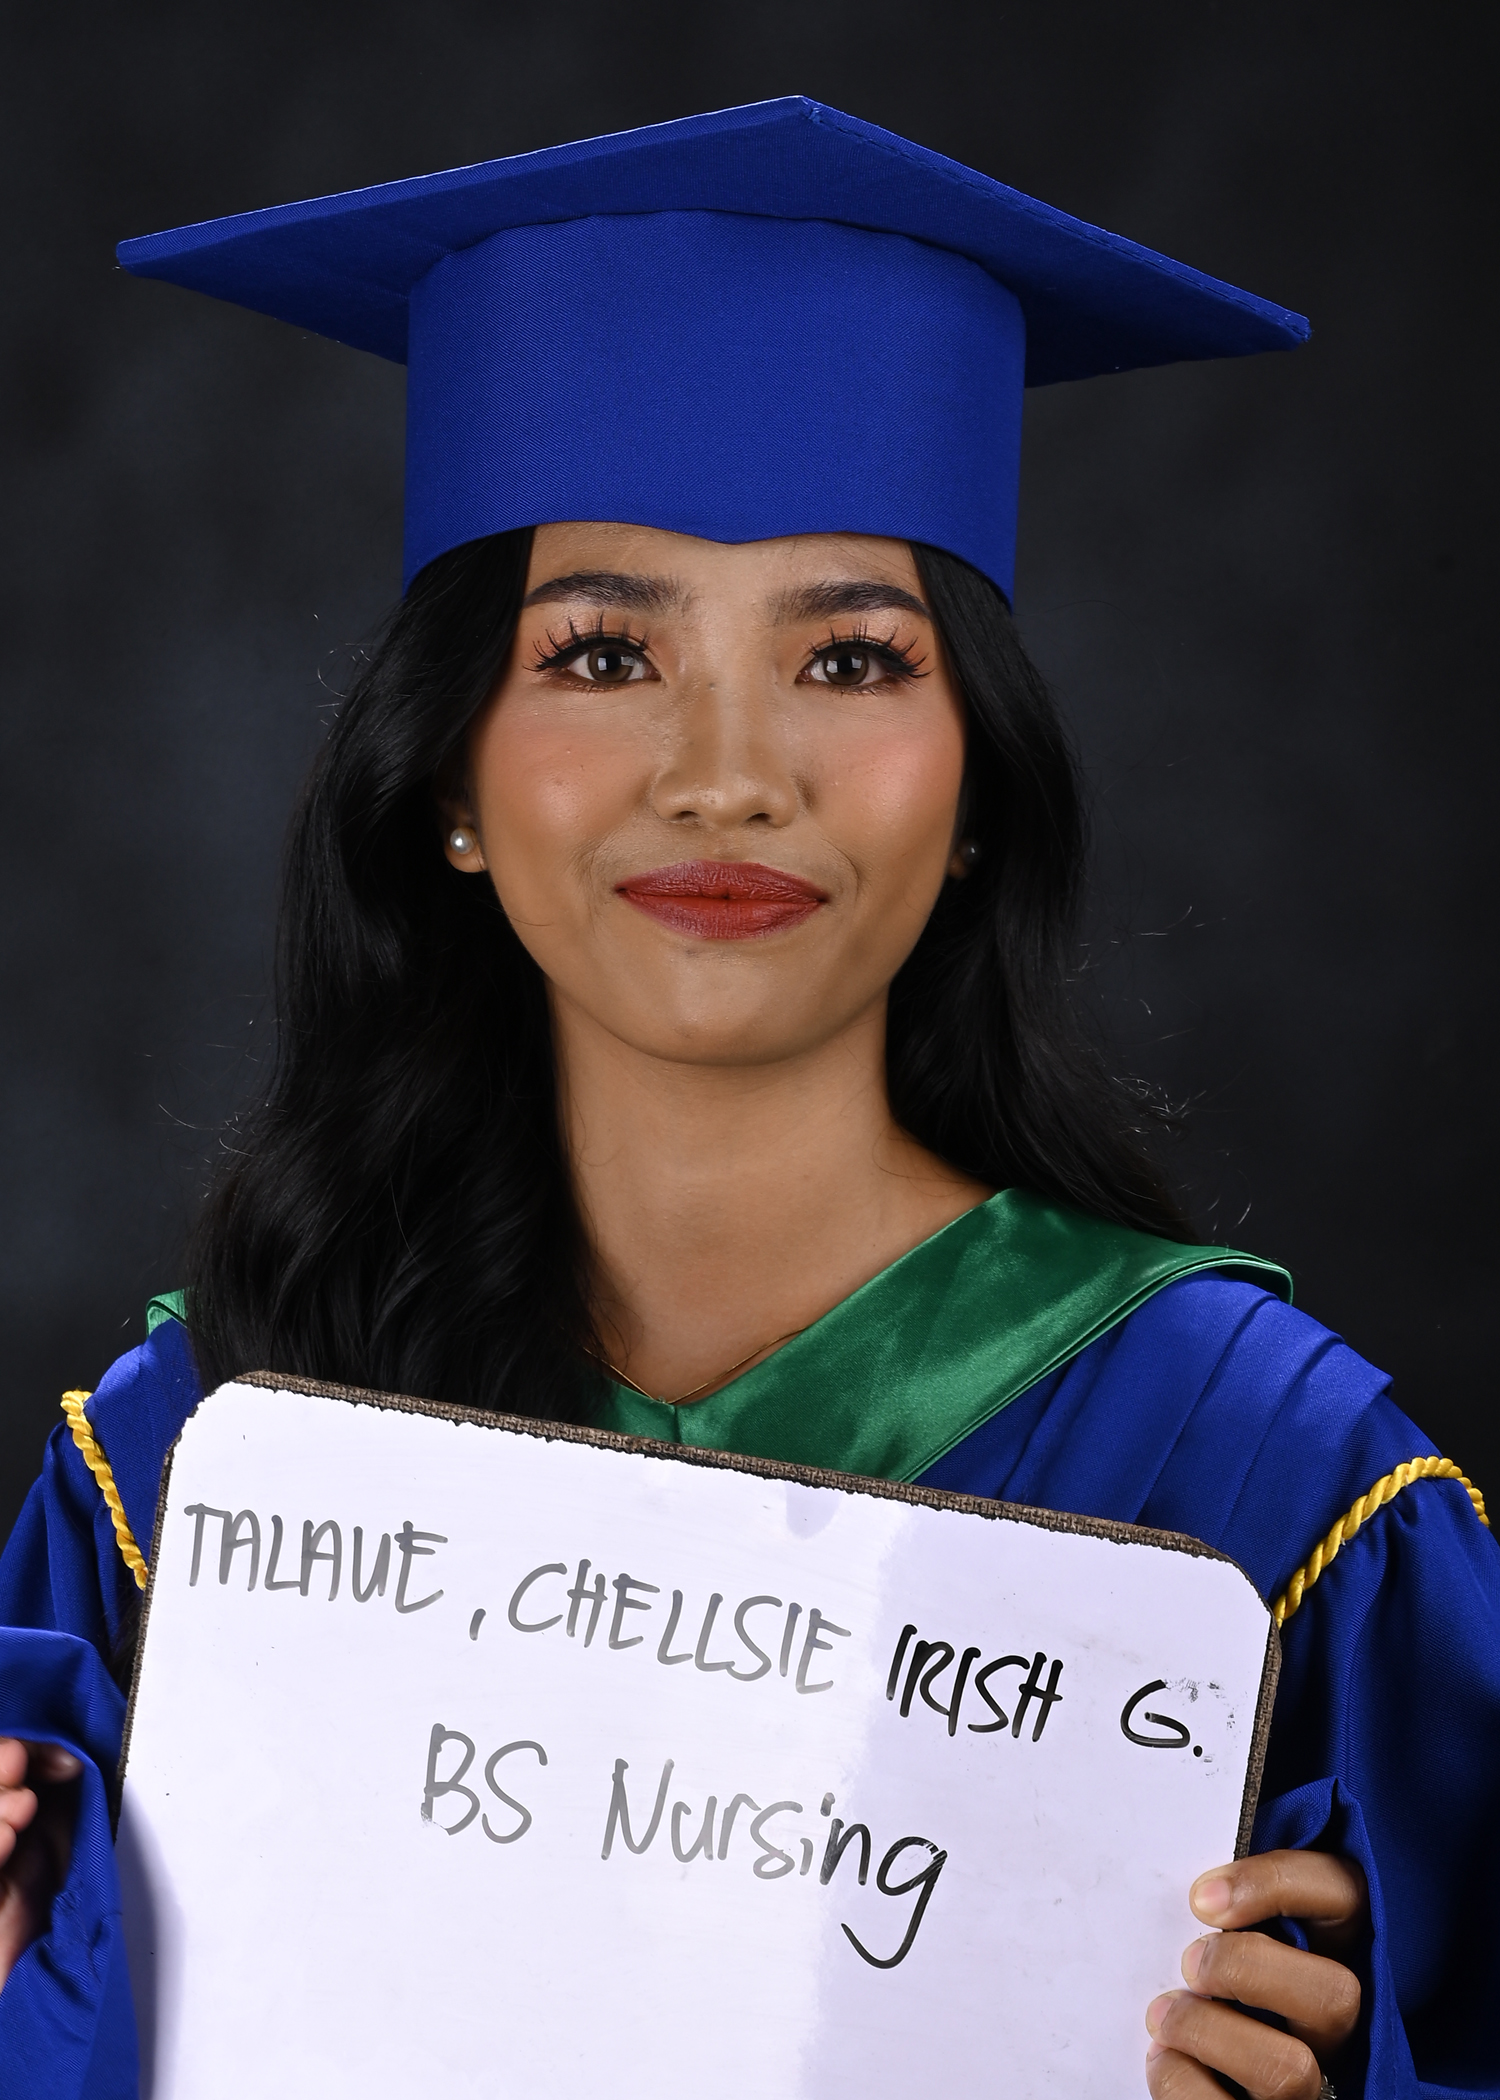 TALAUE, CHELLSIE IRISH G.
BS Nursing